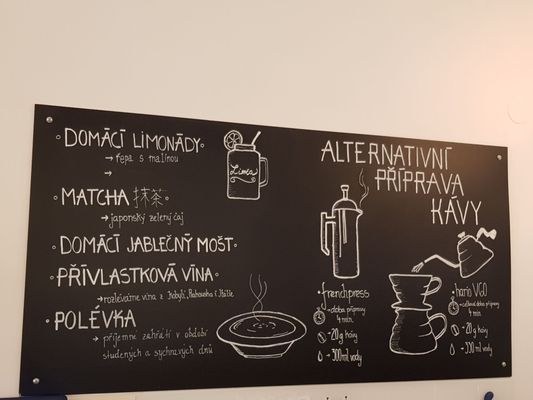 DOMÁCÍ LIMONÁDY
→ řepa s malinou
→
Limča
MATCHA 抹茶
→ japonský zelený čaj
DOMÁCÍ JABLEČNÝ MOŠT
PŘÍVLASTKOVÁ VÍNA
→ rozléváme vína z Kobylí,
POLÉVKA
→ příjemné zahřátí v období
studených a sychravých dnů
ALTERNATIVNÍ
PŘÍPRAVA
KÁVY
frenchpress
→ doba přípravy
4 min.
~20g kávy
~300ml vody
hario V60
→ celková doba přípravy
4 min.
~20g kávy
~300 ml vody